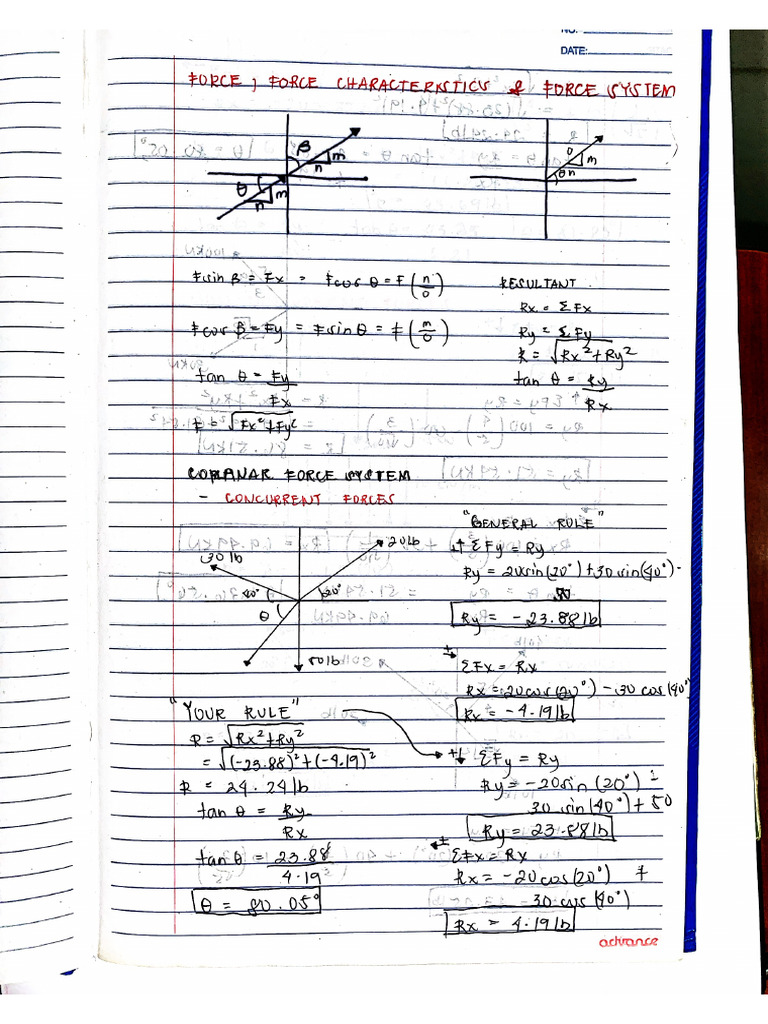 NO.
DATE:
FORCE, FORCE CHARACTERISTICS & FORCE SYSTEM
β
m
n
θ
m
n
o
m
θ n
Fsin β = Fx = Fcos θ = F (n/o)
Fcos β = Fy = Fsin θ = F (m/o)
tan θ = Fy/Fx
F = √Fx²+Fy²
RESULTANT
Rx = ΣFx
Ry = ΣFy
R = √Rx²+Ry²
tan θ = Ry/Rx
COPLANAR FORCE SYSTEM
- CONCURRENT FORCES
30lb
20lb
40°
20°
θ
50lb
"GENERAL RULE"
+↑ ΣFy = Ry
Ry = 20sin(20°)+30sin(40°)-
50
Ry = -23.88lb
ΣFx = Rx
Rx = 20cos(20°) -30 cos(40°)
Rx = -4.19lb
"YOUR RULE"
R = √Rx²+Ry²
= √(-23.88)²+(-4.19)²
R = 24.24lb
tan θ = Ry/Rx
tan θ = 23.88/4.19
θ = 80.05°
+↓ ΣFy = Ry
Ry = -20sin(20°) -
30 sin(40°) + 50
Ry = 23.88lb
ΣFx = Rx
Rx = -20cos(20°) +
30 cos(40°)
Rx = 4.19lb
advance